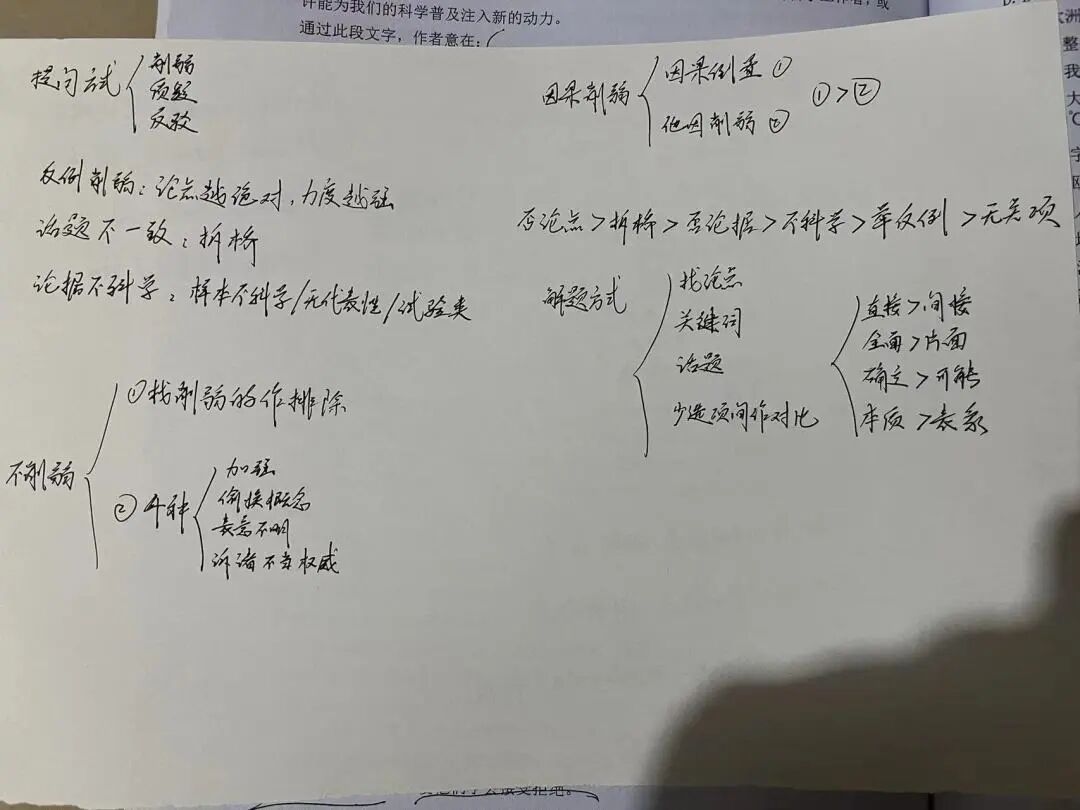 许能为我们的科学普及注入新的动力。
通过此段文字，作者意在：
提问方式
削弱
质疑
反驳
反例削弱：论点越绝对，力度越强
话题不一致：拆桥
论据不科学：样本不科学/无代表性/试验类
不削弱
①找削弱的作排除
②4种
加强
偷换概念
表意不明
诉诸不当权威
因果削弱
因果倒置①
他因削弱②
①>②
否论点>拆桥>否论据>不科学>举反例>无关项
解题方式
找论点
关键词
话题
少选项间作对比
直接>间接
全面>片面
确定>可能
本质>表象